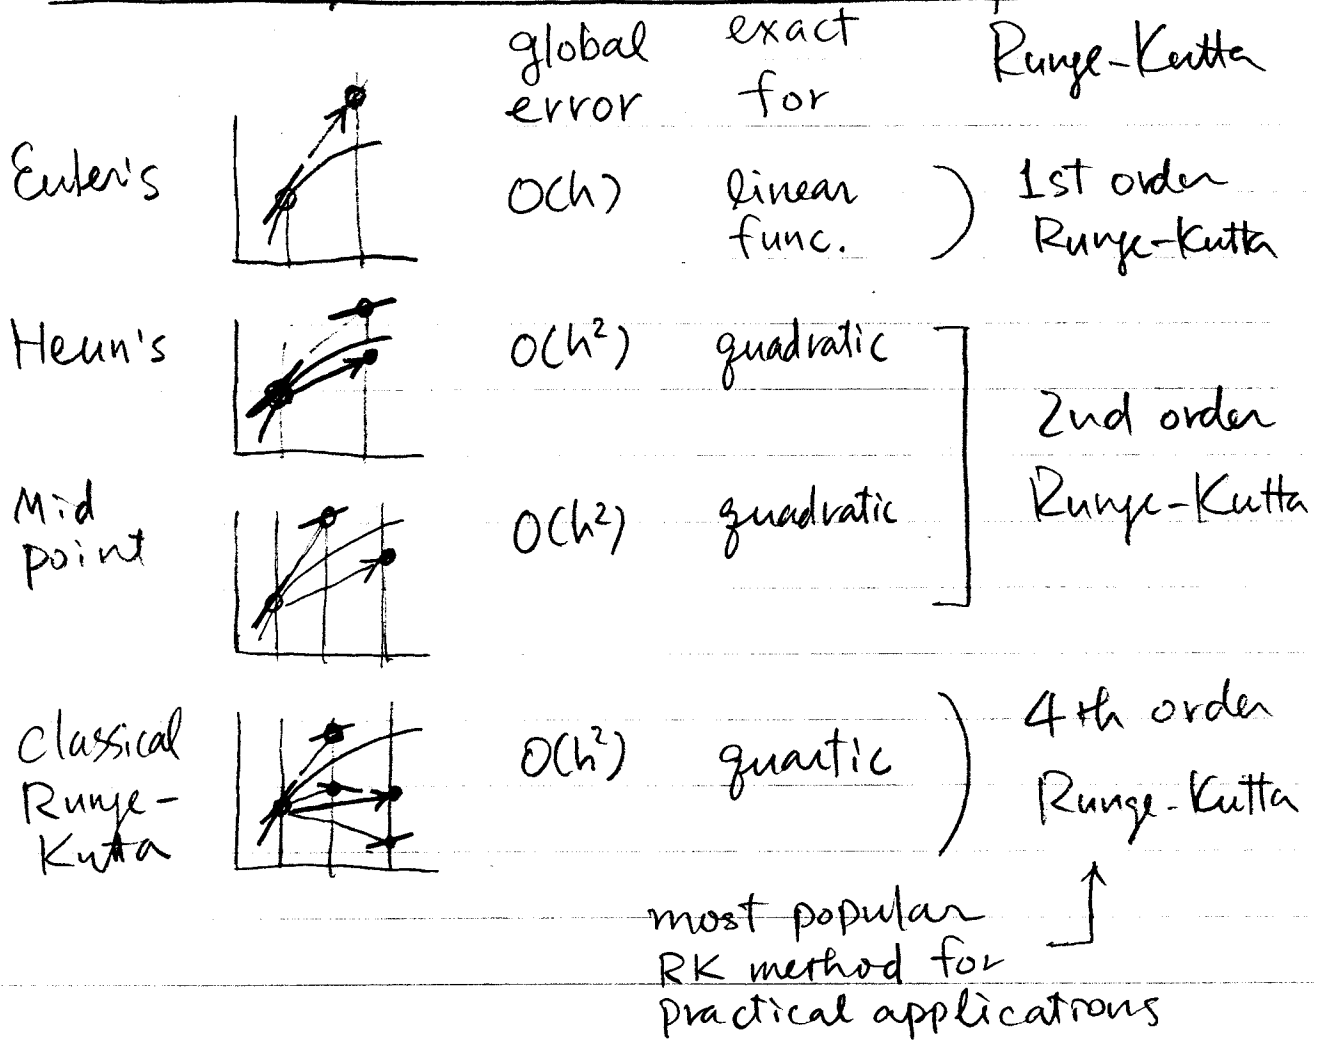 global error exact for Runge-Kutta
Euler's O(h) linear func. 1st order Runge-Kutta
Heun's O(h²) quadratic
2nd order Runge-Kutta
Mid point O(h²) quadratic
Classical Runge-Kutta O(h²) quartic 4th order Runge-Kutta
most popular
RK method for
practical applications